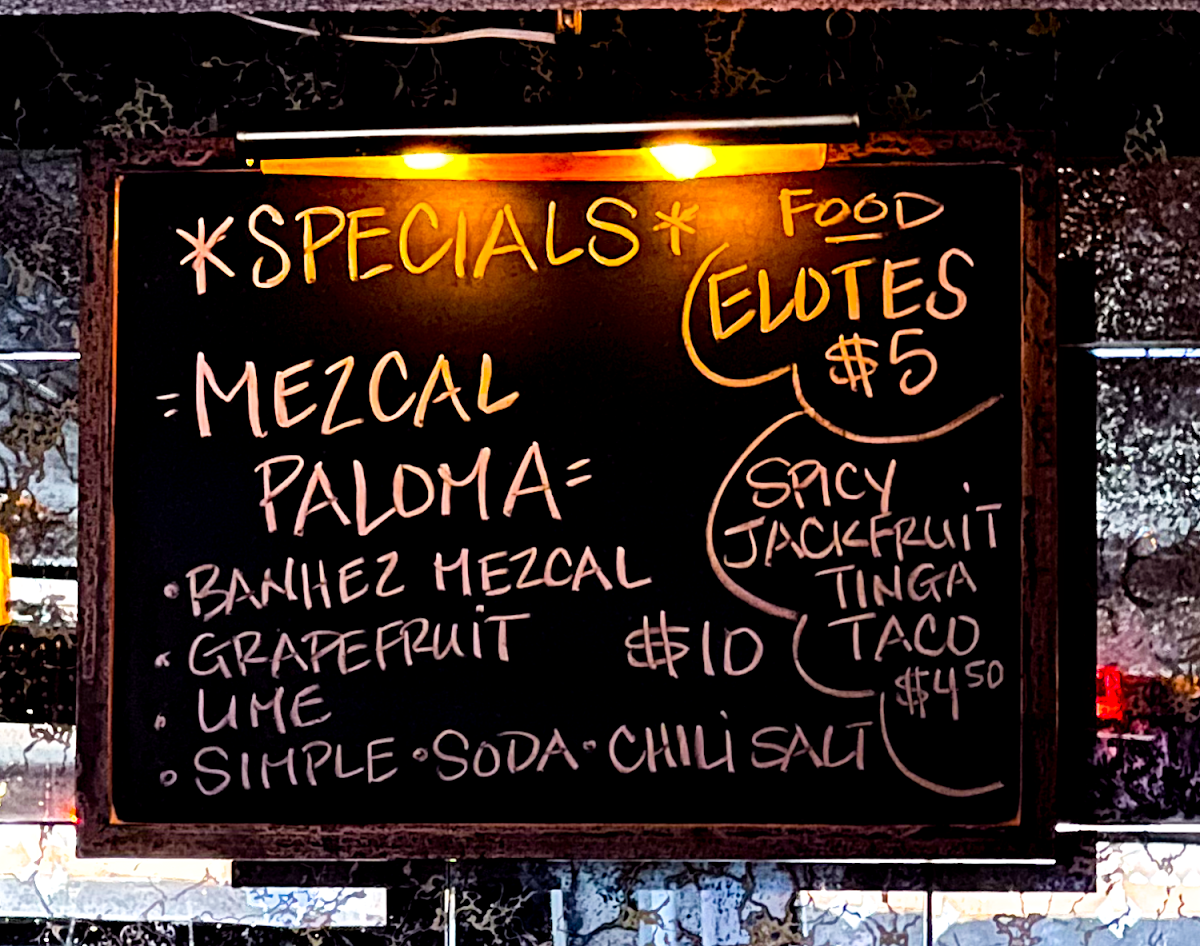 *SPECIALS*
=MEZCAL
PALOMA=
• BANHEZ MEZCAL
• GRAPEFRUiT
• LIME
• SIMPLE • SODA • CHILi SALT
$10
FOOD
ELOTES
$5
SPICY
JACKFRUiT
TINGA
TACO
$4 50